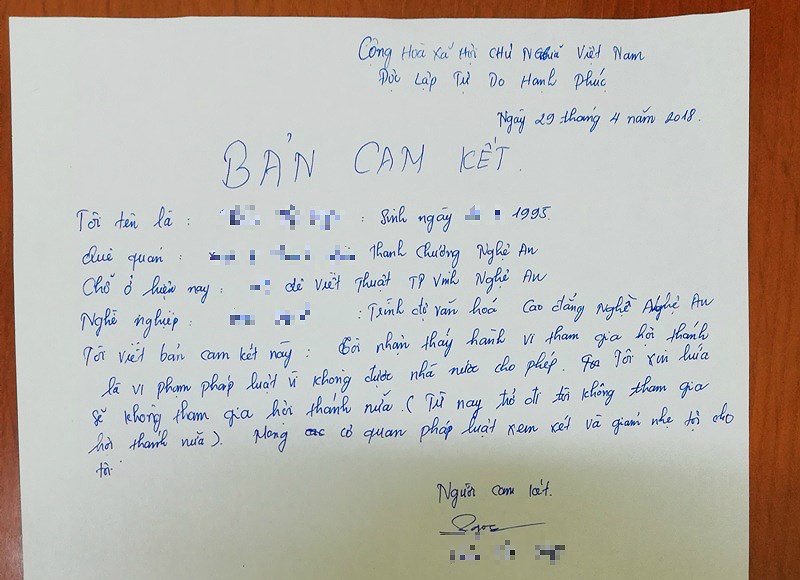 Cộng Hoà Xã Hội Chủ Nghĩa Việt Nam
Độc Lập Tự Do Hạnh Phúc
Ngày 29 tháng 4 năm 2018.
BẢN CAM KẾT.
Tôi tên là : : Sinh ngày 1995.
Quê quán : Thanh Chương Nghệ An
Chỗ ở hiện nay : Lê Viết Thuật TP Vinh Nghệ An
Nghề nghiệp : : Trình độ văn hoá Cao đẳng Nghề Nghệ An
Tôi viết bản cam kết này : Tôi nhận thấy hành vi tham gia hội thánh
là vi phạm pháp luật vì không được nhà nước cho phép. Tôi xin hứa
sẽ không tham gia hội thánh nữa. (Từ nay trở đi tôi không tham gia
hội thánh nữa). Mong cơ quan pháp luật xem xét và giảm nhẹ tội cho
tôi.
Người cam kết.
Ngọc